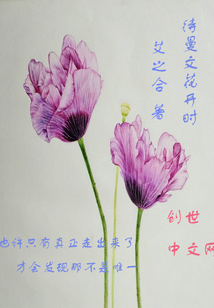 待曼文花开时
艾之合 著
也许只有真正走出来了
才会发现那不是唯一
创世
中文网